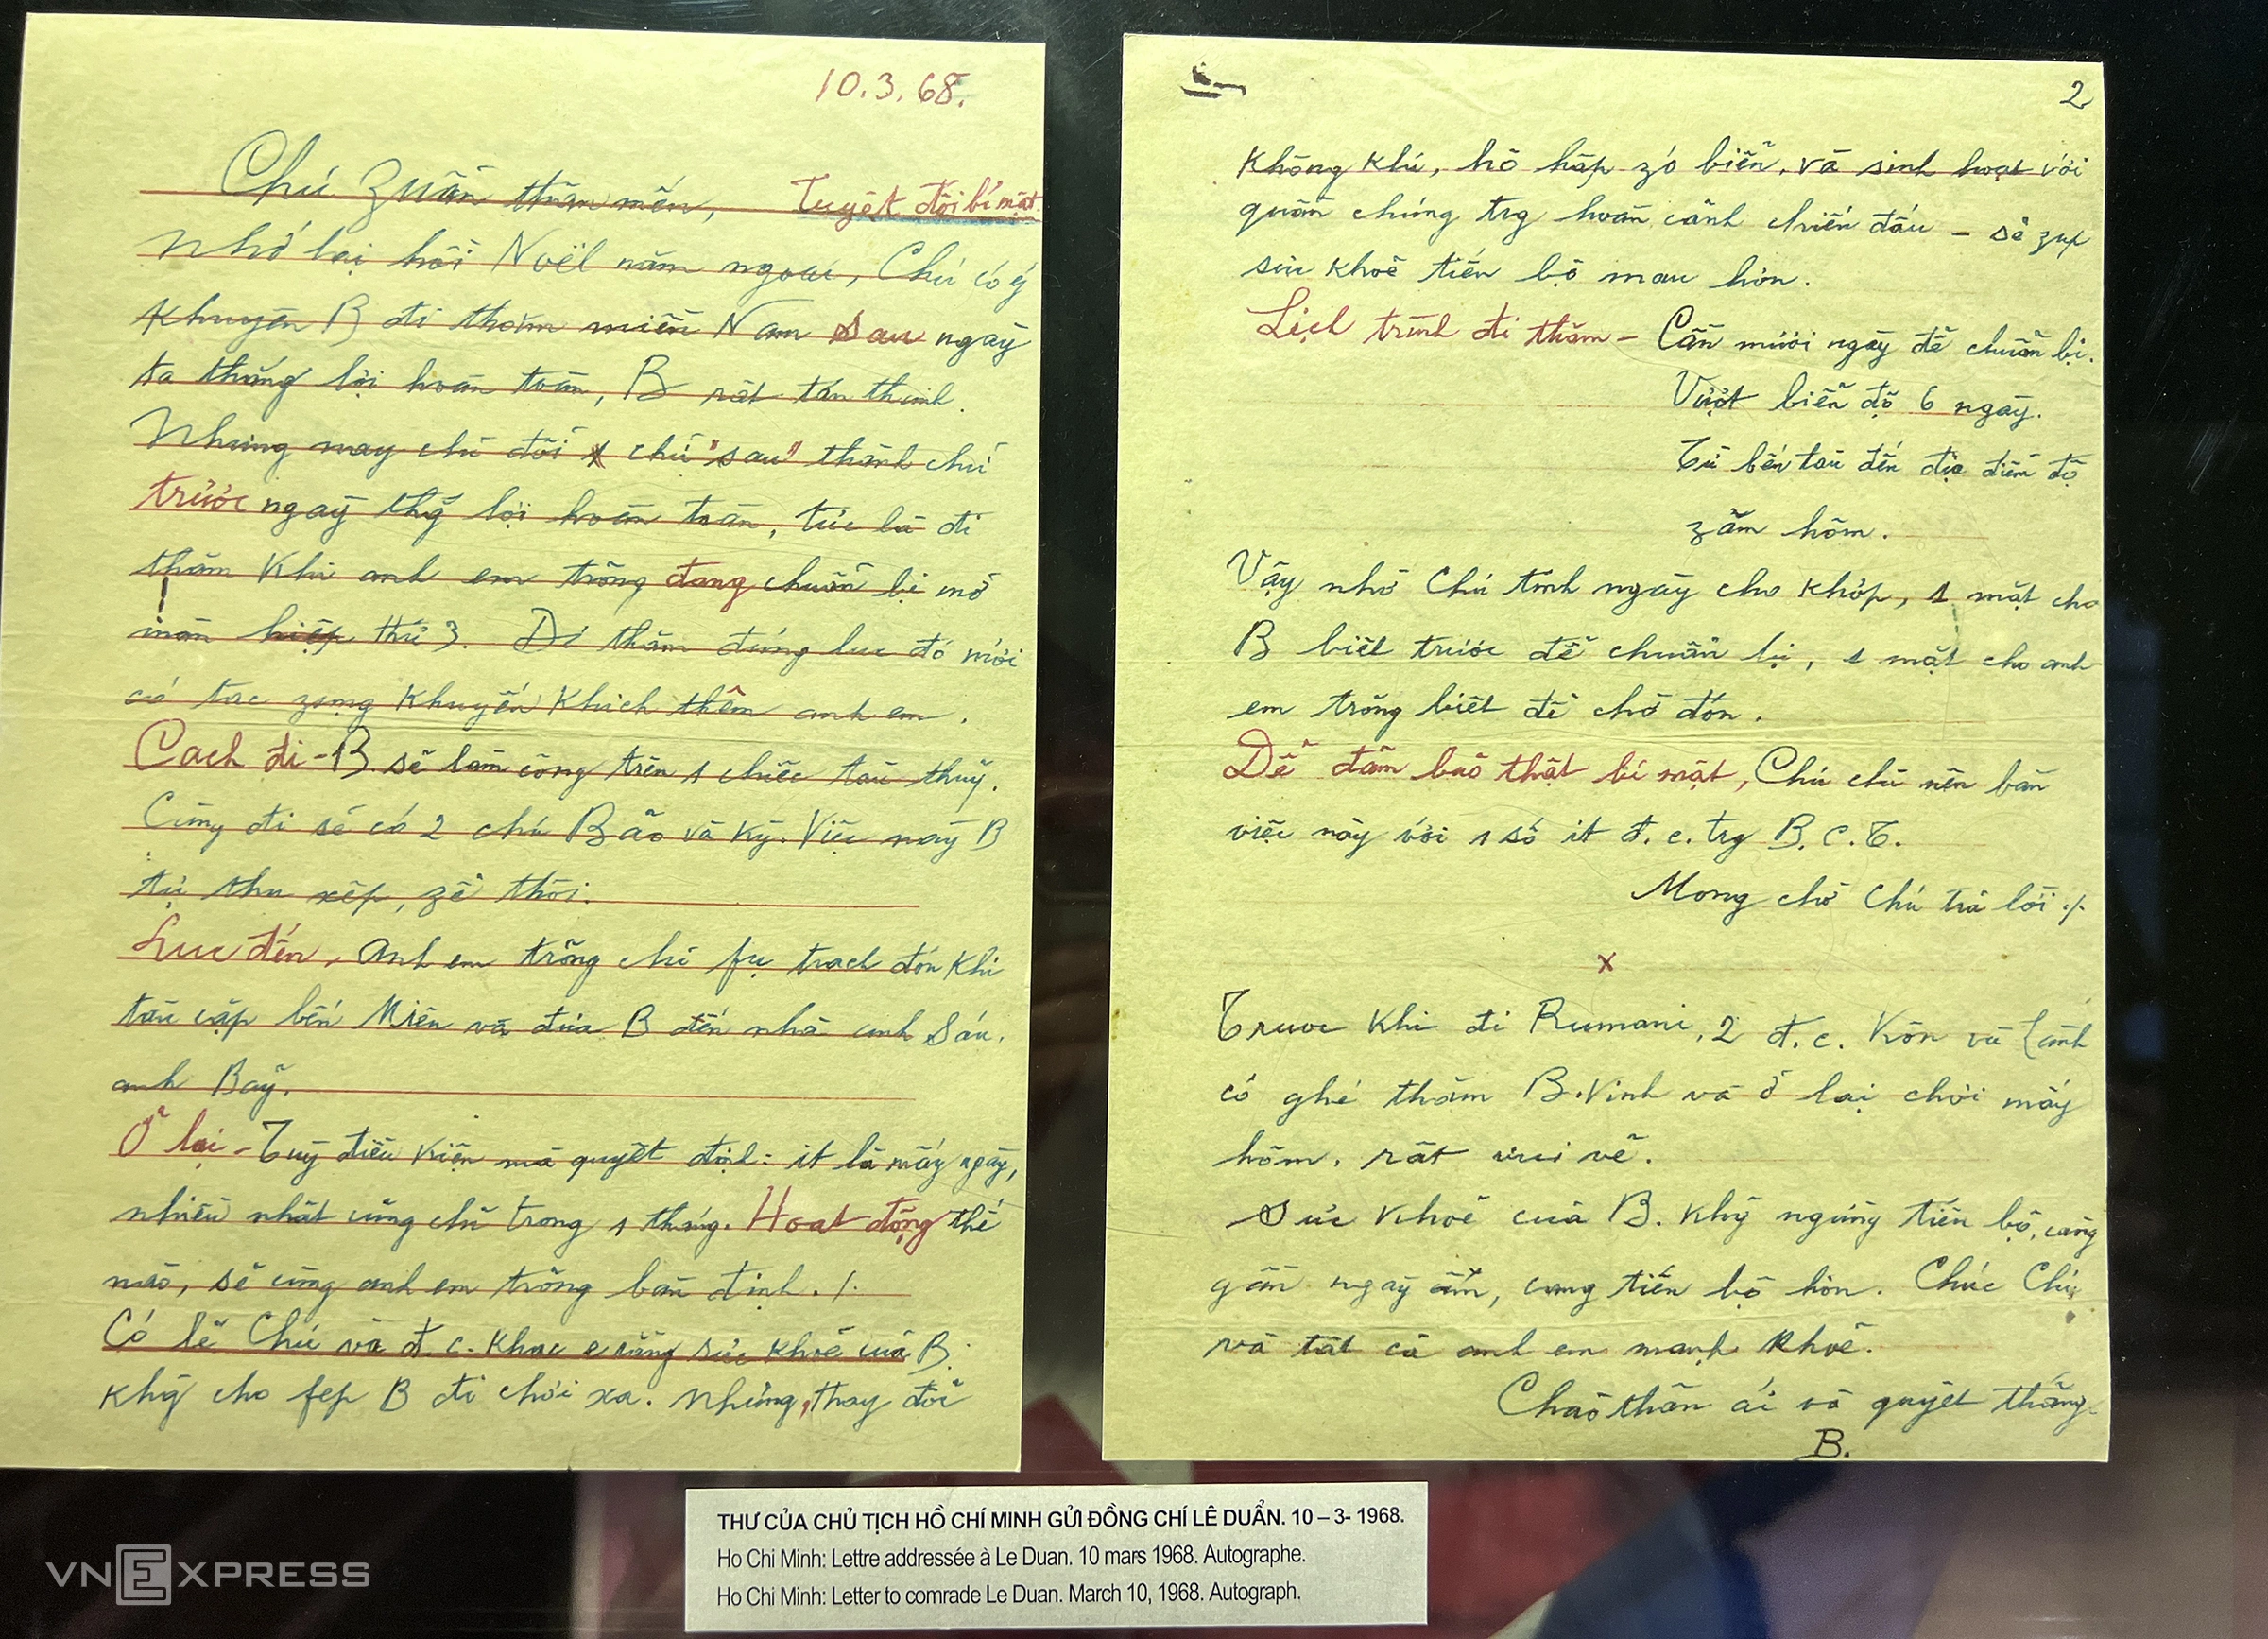 10.3.68.
Chú Zuẩn thân mến, Tuyệt đối bí mật
Nhớ lại hồi Noël năm ngoái, Chú có ý
khuyên B đi thăm miền Nam sau ngày
ta thắng lợi hoàn toàn, B rất tán thành.
Nhưng nay chỉ đổi 1 chữ "sau" thành chữ
trước ngày thg lợi hoàn toàn, tức là đi
thăm khi anh em trỏng đang chuẩn bị mở
màn hiệp thứ 3. Đi thăm đúng lúc đó mới
có tác zụng khuyến khích thêm anh em.
Cách đi - B sẽ làm công trên 1 chiếc tàu thuỷ.
Cùng đi sẽ có 2 chú Bảo và Kỳ. Việc này B
tự thu xếp, zễ thôi.
Lúc đến, anh em trỏng chỉ fụ trách đón khi
tàu cập bến Miên và đưa B đến nhà anh Sáu,
anh Bảy.
Ở lại - Tuỳ điều kiện mà quyết định: ít là mấy ngày,
nhiều nhất cũng chỉ trong 1 tháng. Hoạt động thế
nào, sẽ cùng anh em trỏng bàn định ./.
Có lẽ Chú và đ.c. khác e rằng sức khoẻ của B.
khg cho fép B đi chơi xa. Nhưng, thay đổi
2
không khí, hô hấp zó biển, và sinh hoạt với
quần chúng trg hoàn cảnh chiến đấu - sẽ zúp
sức khoẻ tiến bộ mau hơn.
Lịch trình đi thăm - Cần mười ngày để chuẩn bị.
Vượt biển độ 6 ngày.
Từ bến tàu đến địa điểm độ
zăm hôm.
Vậy nhờ Chú tính ngày cho khớp, 1 mặt cho
B biết trước để chuẩn bị, 1 mặt cho anh
em trỏng biết để chờ đón.
Để đảm bảo thật bí mật, Chú chỉ nên bàn
việc này với 1 số ít đ.c. trg B.C.T.
Mong chờ Chú trả lời ./.
x
Trước khi đi Rumani, 2 đ.c. Kôn và
có ghé thăm B. Vinh và ở lại chơi mấy
hôm, rất vui vẻ.
Sức khoẻ của B. khg ngừng tiến bộ, càng
gần ngày ấm, càng tiến bộ hơn. Chúc Chú
và tất cả anh em mạnh khoẻ.
Chào thân ái và quyết thắng
B.
THƯ CỦA CHỦ TỊCH HỒ CHÍ MINH GỬI ĐỒNG CHÍ LÊ DUẨN. 10 – 3- 1968.
Ho Chi Minh: Lettre addressée à Le Duan. 10 mars 1968. Autographe.
Ho Chi Minh: Letter to comrade Le Duan. March 10, 1968. Autograph.
VNEXPRESS